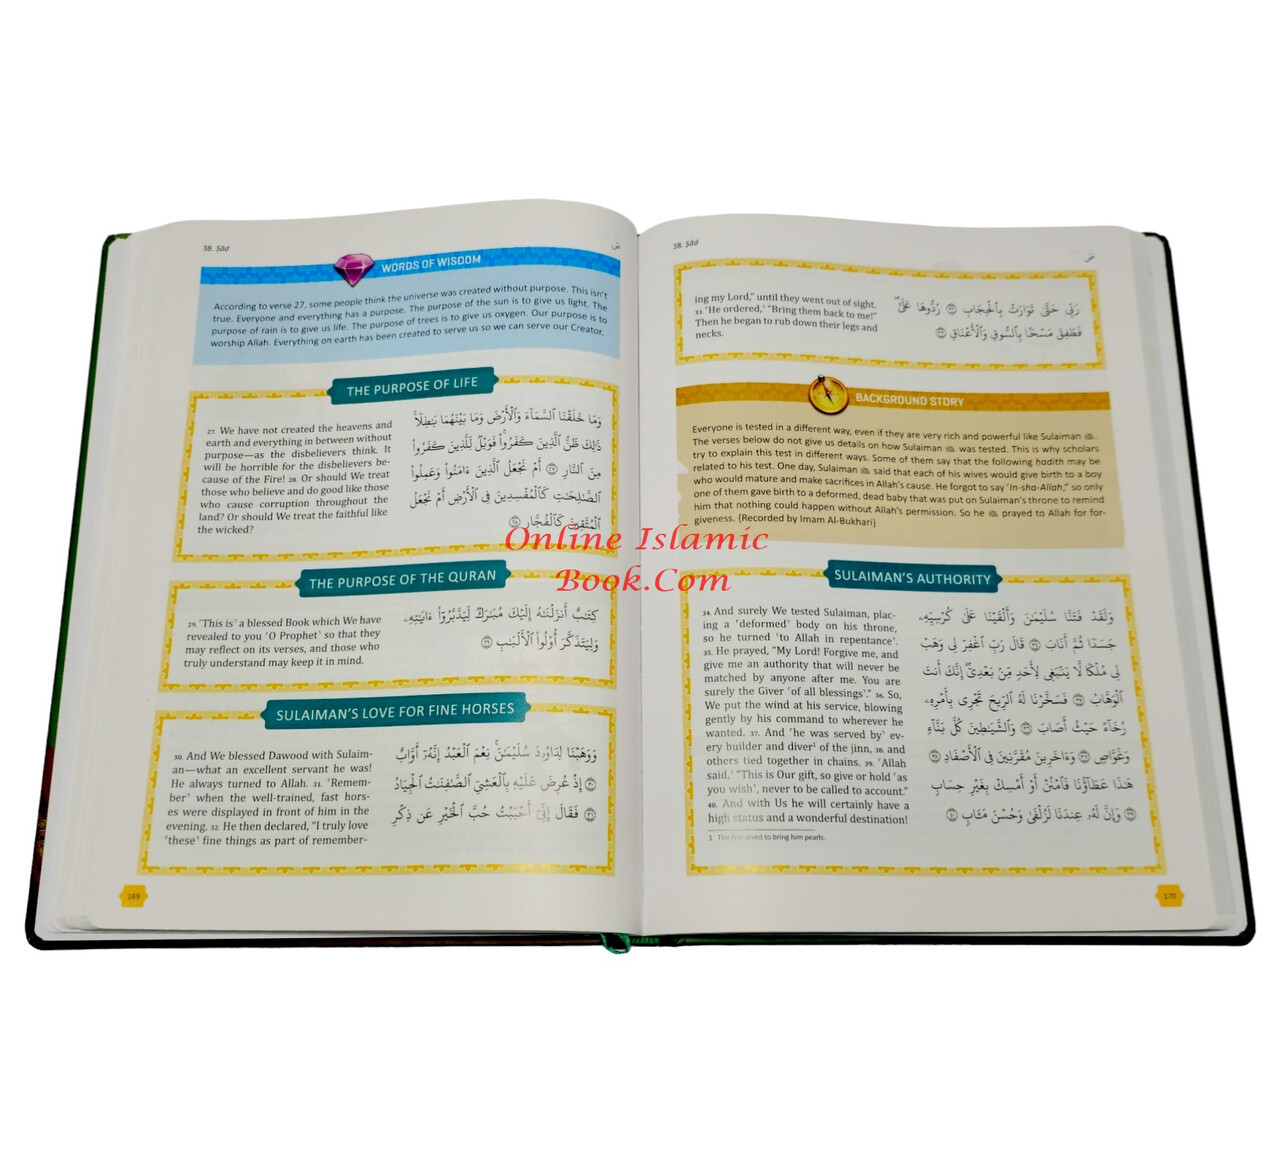 38. Ṣâd
صٓ
WORDS OF WISDOM
According to verse 27, some people think the universe was created without purpose. This isn't
true. Everyone and everything has a purpose. The purpose of the sun is to give us light. The
purpose of rain is to give us life. The purpose of trees is to give us oxygen. Our purpose is to
worship Allah. Everything on earth has been created to serve us so we can serve our Creator.
THE PURPOSE OF LIFE
27. We have not created the heavens and
earth and everything in between without
purpose—as the disbelievers think. It
will be horrible for the disbelievers be-
cause of the Fire! 28. Or should We treat
those who believe and do good like those
who cause corruption throughout the
land? Or should We treat the faithful like
the wicked?
وَمَا خَلَقْنَا ٱلسَّمَآءَ وَٱلْأَرْضَ وَمَا بَيْنَهُمَا بَٰطِلًا
ذَٰلِكَ ظَنُّ ٱلَّذِينَ كَفَرُوا۟ فَوَيْلٌ لِّلَّذِينَ كَفَرُوا۟
مِنَ ٱلنَّارِ ٢٧ أَمْ نَجْعَلُ ٱلَّذِينَ ءَامَنُوا۟ وَعَمِلُوا۟
ٱلصَّٰلِحَٰتِ كَٱلْمُفْسِدِينَ فِى ٱلْأَرْضِ أَمْ نَجْعَلُ
ٱلْمُتَّقِينَ كَٱلْفُجَّارِ ٢٨
THE PURPOSE OF THE QURAN
29. ˹This is˺ a blessed Book which We have
revealed to you ˹O Prophet˺ so that they
may reflect on its verses, and those who
truly understand may keep it in mind.
كِتَٰبٌ أَنزَلْنَٰهُ إِلَيْكَ مُبَٰرَكٌ لِّيَدَّبَّرُوٓا۟ ءَايَٰتِهِۦ
وَلِيَتَذَكَّرَ أُو۟لُوا۟ ٱلْأَلْبَٰبِ ٢٩
SULAIMAN'S LOVE FOR FINE HORSES
30. And We blessed Dawood with Sulaim-
an—what an excellent servant he was!
He always turned to Allah. 31. ˹Remem-
ber˺ when the well-trained, fast hors-
es were displayed in front of him in the
evening. 32. He then declared, "I truly love
˹these˺ fine things as part of remember-
وَوَهَبْنَا لِدَاوُۥدَ سُلَيْمَٰنَ نِعْمَ ٱلْعَبْدُ إِنَّهُۥٓ أَوَّابٌ
٣٠ إِذْ عُرِضَ عَلَيْهِ بِٱلْعَشِىِّ ٱلصَّٰفِنَٰتُ ٱلْجِيَادُ
٣١ فَقَالَ إِنِّىٓ أَحْبَبْتُ حُبَّ ٱلْخَيْرِ عَن ذِكْرِ
169
38. Ṣâd
صٓ
ing my Lord," until they went out of sight.
33. ˹He ordered,˺ "Bring them back to me!"
Then he began to rub down their legs and
necks.
رَبِّى حَتَّىٰ تَوَارَتْ بِٱلْحِجَابِ ٣٢ رُدُّوهَا عَلَىَّ
فَطَفِقَ مَسْحًۢا بِٱلسُّوقِ وَٱلْأَعْنَاقِ ٣٣
BACKGROUND STORY
Everyone is tested in a different way, even if they are very rich and powerful like Sulaiman ﷺ.
The verses below do not give us details on how Sulaiman ﷺ was tested. This is why scholars
try to explain this test in different ways. Some of them say that the following hadith may be
related to his test. One day, Sulaiman ﷺ said that each of his wives would give birth to a boy
who would mature and make sacrifices in Allah's cause. He forgot to say 'In-sha-Allah,' so only
one of them gave birth to a deformed, dead baby that was put on Sulaiman's throne to remind
him that nothing could happen without Allah's permission. So he ﷺ prayed to Allah for for-
giveness. {Recorded by Imam Al-Bukhari}
SULAIMAN'S AUTHORITY
34. And surely We tested Sulaiman, plac-
ing a ˹deformed˺ body on his throne,
so he turned ˹to Allah in repentance˺.
35. He prayed, "My Lord! Forgive me, and
give me an authority that will never be
matched by anyone after me. You are
surely the Giver ˹of all blessings˺." 36. So,
We put the wind at his service, blowing
gently by his command to wherever he
wanted. 37. And ˹he was served by˺ ev-
ery builder and diver¹ of the jinn, 38. and
others tied together in chains. 39. ˹Allah
said,˺ "This is Our gift, so give or hold ˹as
you wish˺, never to be called to account."
40. And with Us he will certainly have a
high status and a wonderful destination!
وَلَقَدْ فَتَنَّا سُلَيْمَٰنَ وَأَلْقَيْنَا عَلَىٰ كُرْسِيِّهِۦ
جَسَدًا ثُمَّ أَنَابَ ٣٤ قَالَ رَبِّ ٱغْفِرْ لِى وَهَبْ
لِى مُلْكًا لَّا يَنۢبَغِى لِأَحَدٍ مِّنۢ بَعْدِىٓ إِنَّكَ أَنتَ
ٱلْوَهَّابُ ٣٥ فَسَخَّرْنَا لَهُ ٱلرِّيحَ تَجْرِى بِأَمْرِهِۦ
رُخَآءً حَيْثُ أَصَابَ ٣٦ وَٱلشَّيَٰطِينَ كُلَّ بَنَّآءٍ
وَغَوَّاصٍ ٣٧ وَءَاخَرِينَ مُقَرَّنِينَ فِى ٱلْأَصْفَادِ ٣٨
هَٰذَا عَطَآؤُنَا فَٱمْنُنْ أَوْ أَمْسِكْ بِغَيْرِ حِسَابٍ
٣٩ وَإِنَّ لَهُۥ عِندَنَا لَزُلْفَىٰ وَحُسْنَ مَـَٔابٍ ٤٠
1 The jinn dived to bring him pearls.
170
Online Islamic
Book.Com